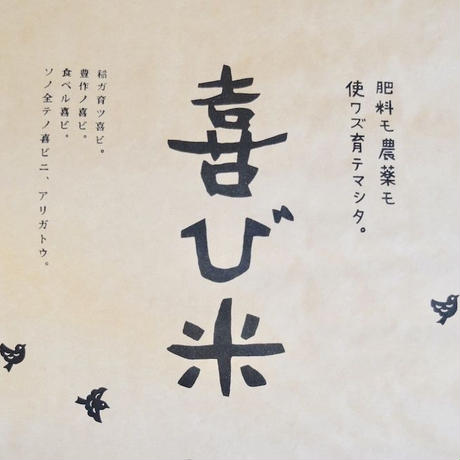 肥料モ農薬モ
使ワズ育テマシタ。
喜び米
稲ガ育ツ喜ビ。
豊作ノ喜ビ。
食ベル喜ビ。
ソノ全テノ喜ビニ、アリガトウ。